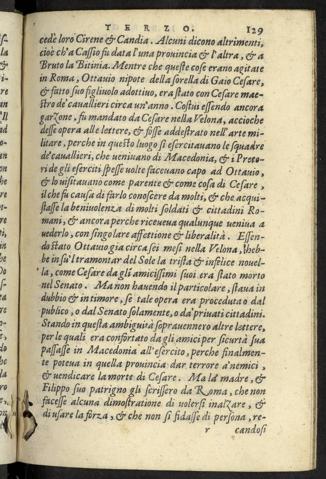 TERZO. 129
cedè loro Cirene & Candia. Alcuni dicono altrimenti,
cioè ch'a Cassio fu data l'una prouincia & l'altra, & a
Bruto la Bitinia. Mentre che queste cose erano agitate
in Roma, Ottauio nipote della sorella di Gaio Cesare,
& fatto suo figliuolo adottiuo, era stato con Cesare mae-
stro de' cauallieri circa un'anno. Costui essendo ancora
garzone, fu mandato da Cesare nella Velona, accioche
desse opera alle lettere, & fosse addestrato nell'arte mi-
litare, perche in questo luogo si esercitauano le squadre
de' cauallieri, che ueniuano di Macedonia, & i Preto-
ri de gli eserciti spesse uolte faceuano capo ad Ottauio,
& lo uisitauano come parente & come cosa di Cesare,
il che fu causa di farlo conoscere da molti, & che acqui-
stasse la beniuolenza di molti soldati & cittadini Ro-
mani, & ancora perche riceueua qualunque ueniua a
uederlo, con singolare affettione & liberalità. Essen-
do stato Ottauio gia circa sei mesi nella Velona, hebbe
in su'l tramontar del Sole la trista & infelice nouel-
la, come Cesare da gli amicissimi suoi era stato morto
nel Senato. Ma non hauendo il particolare, staua in
dubbio & in timore, se tale opera era proceduta o dal
publico, o dal Senato solamente, o da' priuati cittadini.
Stando in questa ambiguità soprauennero altre lettere,
per le quali era confortato da gli amici per sicurtà sua
passasse in Macedonia all'esercito, perche finalmen-
te poteua in quella prouincia dar terrore a' nemici,
& uendicare la morte di Cesare. Ma la madre, &
Filippo suo patrigno gli scrissero da Roma, che non
facesse alcuna dimostratione di uolersi inalzare, &
di usare la forza, & che non si fidasse di persona, re-
r candosi